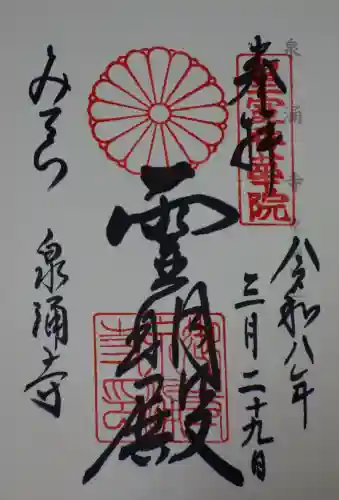 泉涌寺
奉拝
令和八年
三月二十九日
霊明殿
みてら
泉涌寺